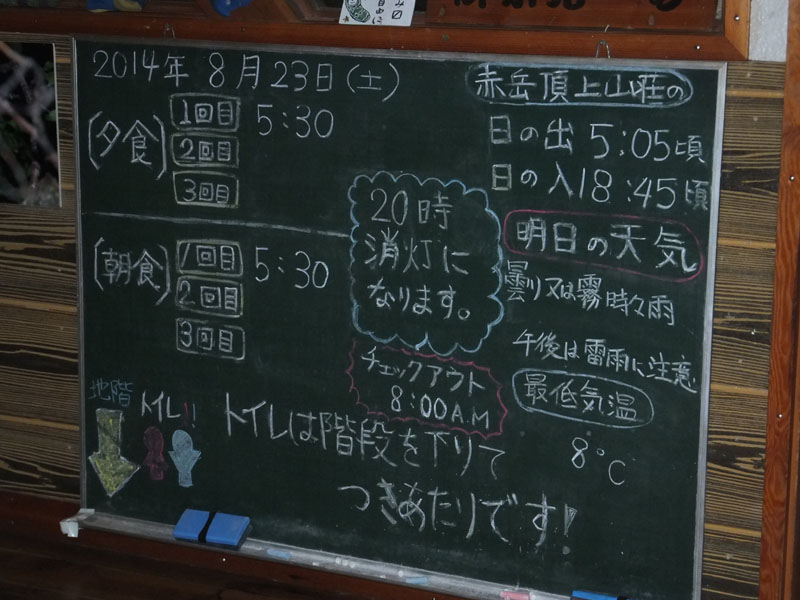 2014年 8月23日(土)
(夕食)
1回目 5:30
2回目
3回目
(朝食)
1回目 5:30
2回目
3回目
20時
消灯に
なります。
チェックアウト
8:00A.M
赤岳頂上山荘の
日の出 5:05頃
日の入18:45頃
明日の天気
曇り又は霧時々雨
午後は雷雨に注意
最低気温
8℃
地階
トイレ!!
トイレは階段を下りて
つきあたりです!